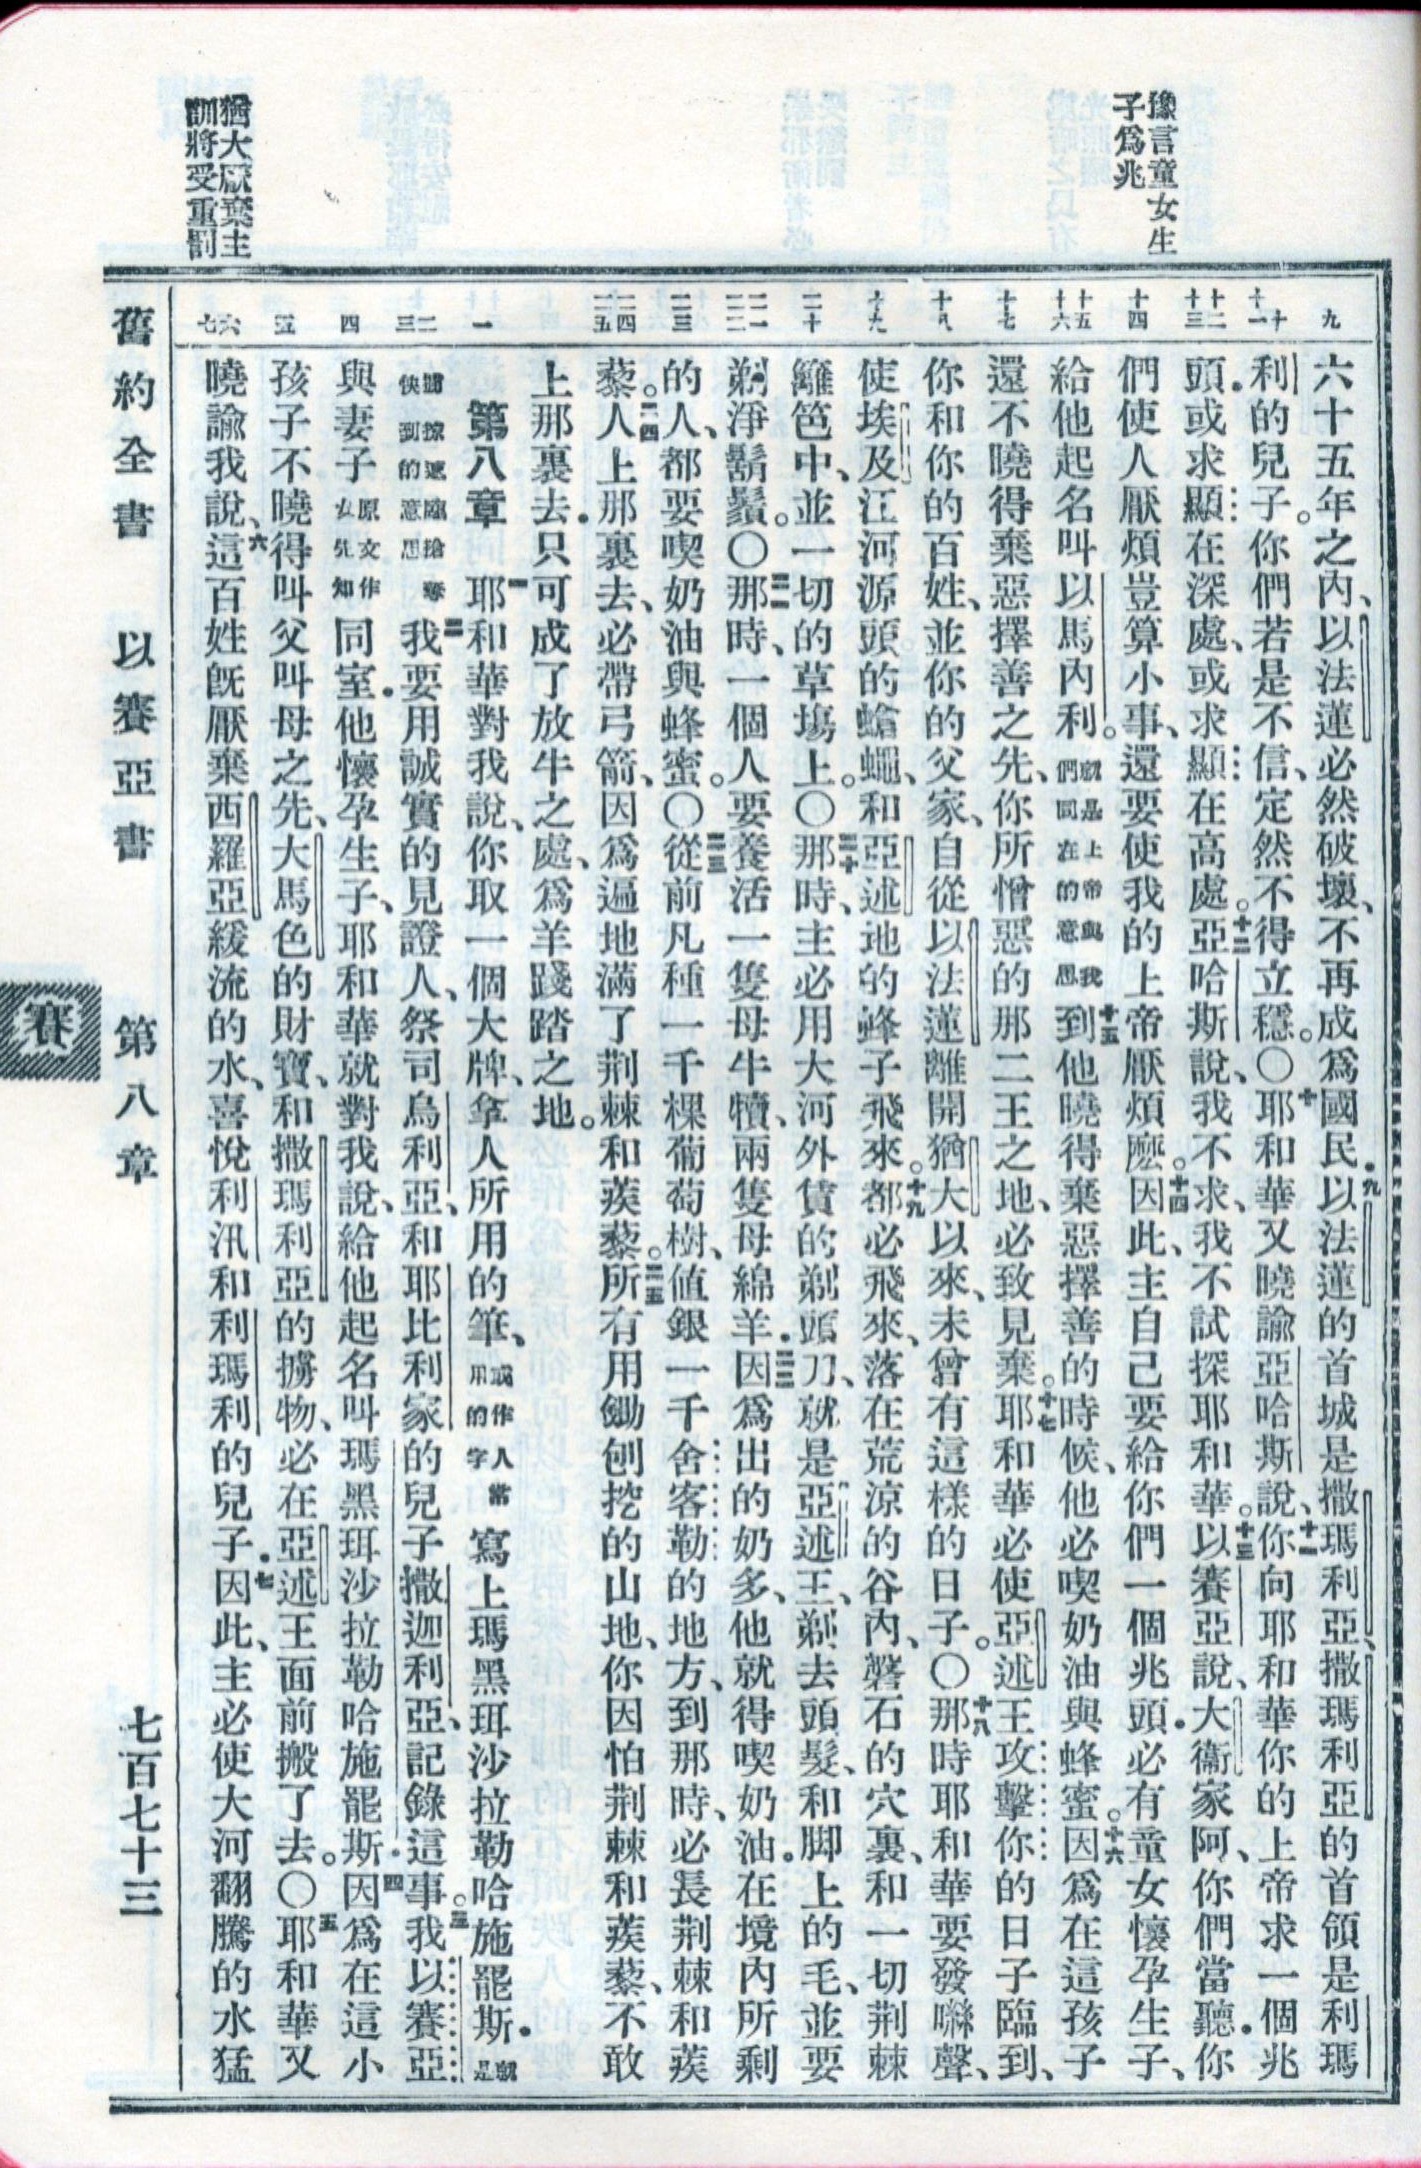 豫言童女生
子爲兆
猶大厭棄主
訓將受重罰
九
十
十一
十二
十三
十四
十五
十六
十七
十八
十九
二十
二一
二二
二三
二四
二五
一
二
三
四
五
六
七
六十五年之內、以法蓮必然破壞、不再成爲國民．九以法蓮的首城是撒瑪利亞、撒瑪利亞的首領是利瑪
利的兒子。你們若是不信、定然不得立穩。〇十耶和華又曉諭亞哈斯說、十一你向耶和華你的上帝求一個兆
頭．或求顯在深處、或求顯在高處。十二亞哈斯說、我不求、我不試探耶和華。十三以賽亞說、大衞家阿、你們當聽．你
們使人厭煩豈算小事、還要使我的上帝厭煩麽。十四因此、主自己要給你們一個兆頭．必有童女懷孕生子、
給他起名叫以馬內利。就是上帝與我們同在的意思十五到他曉得棄惡擇善的時候、他必喫奶油與蜂蜜。十六因爲在這孩子
還不曉得棄惡擇善之先、你所憎惡的那二王之地、必致見棄。十七耶和華必使亞述王攻擊你的日子臨到、
你和你的百姓、並你的父家、自從以法蓮離開猶大以來、未曾有這樣的日子。〇十八那時耶和華要發嘶聲、
使埃及江河源頭的蒼蠅、和亞述地的蜂子飛來．十九都必飛來、落在荒涼的谷內、磐石的穴裏、和一切荆棘
籬笆中、並一切的草塲上。〇二十那時、主必用大河外賃的剃頭刀、就是亞述王、剃去頭髮、和脚上的毛、並要
剃淨鬍鬚。〇二一那時、一個人要養活一隻母牛犢、兩隻母綿羊．二二因爲出的奶多、他就得喫奶油．在境內所剩
的人、都要喫奶油與蜂蜜。〇二三從前凡種一千棵葡萄樹、值銀一千舍客勒的地方、到那時、必長荆棘和蒺
藜。二四人上那裏去、必帶弓箭、因爲遍地滿了荆棘和蒺藜。二五所有用鋤刨挖的山地、你因怕荆棘和蒺藜、不敢
上那裏去．只可成了放牛之處、爲羊踐踏之地。
第八章　一耶和華對我說、你取一個大牌、拿人所用的筆、或作人常用的字寫上瑪黑珥沙拉勒哈施罷斯．就是
擄掠速臨搶奪快到的意思二我要用誠實的見證人、祭司烏利亞、和耶比利家的兒子撒迦利亞、記錄這事。三我以賽亞
與妻子原文作女先知同室．他懷孕生子、耶和華就對我說、給他起名叫瑪黑珥沙拉勒哈施罷斯．四因爲在這小
孩子不曉得叫父叫母之先、大馬色的財寶、和撒瑪利亞的擄物、必在亞述王面前搬了去。〇五耶和華又
曉諭我說、六這百姓旣厭棄西羅亞緩流的水、喜悅利汛和利瑪利的兒子．七因此、主必使大河翻騰的水猛
舊約全書　以賽亞書　第八章　七百七十三
賽